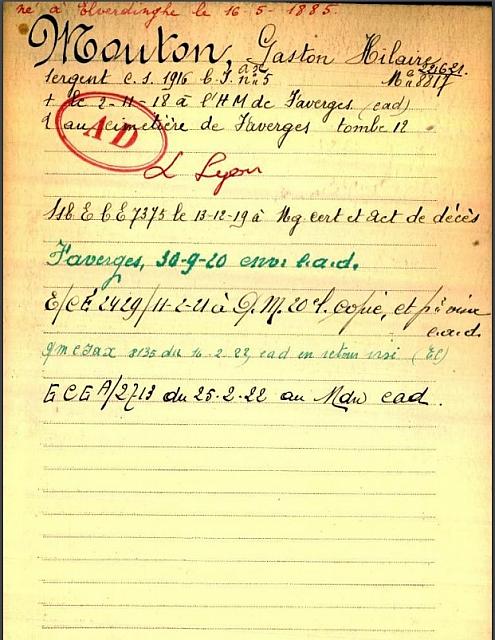 né à Elverdinghe le 16-5-1885.
Mouton, Gaston Hilaire
sergent c.s. 1916 b.I. n° 5
+ le 2-11-18 à l'HM de Faverges (cad)
d au cimetière de Faverges tombe 12
AD
L Lyon
le 13-12-19 à Mg cert et act de décès
Faverges, 30-9-20 envoi c.a.d.
E/CE 2429/11-2-21 à Q.M. 20 f. copie, et
c.a.d.
8135 du 16-2-22, cad en retour (EC)
ECEA/2713 du 25-2-22 au Mdn cad.